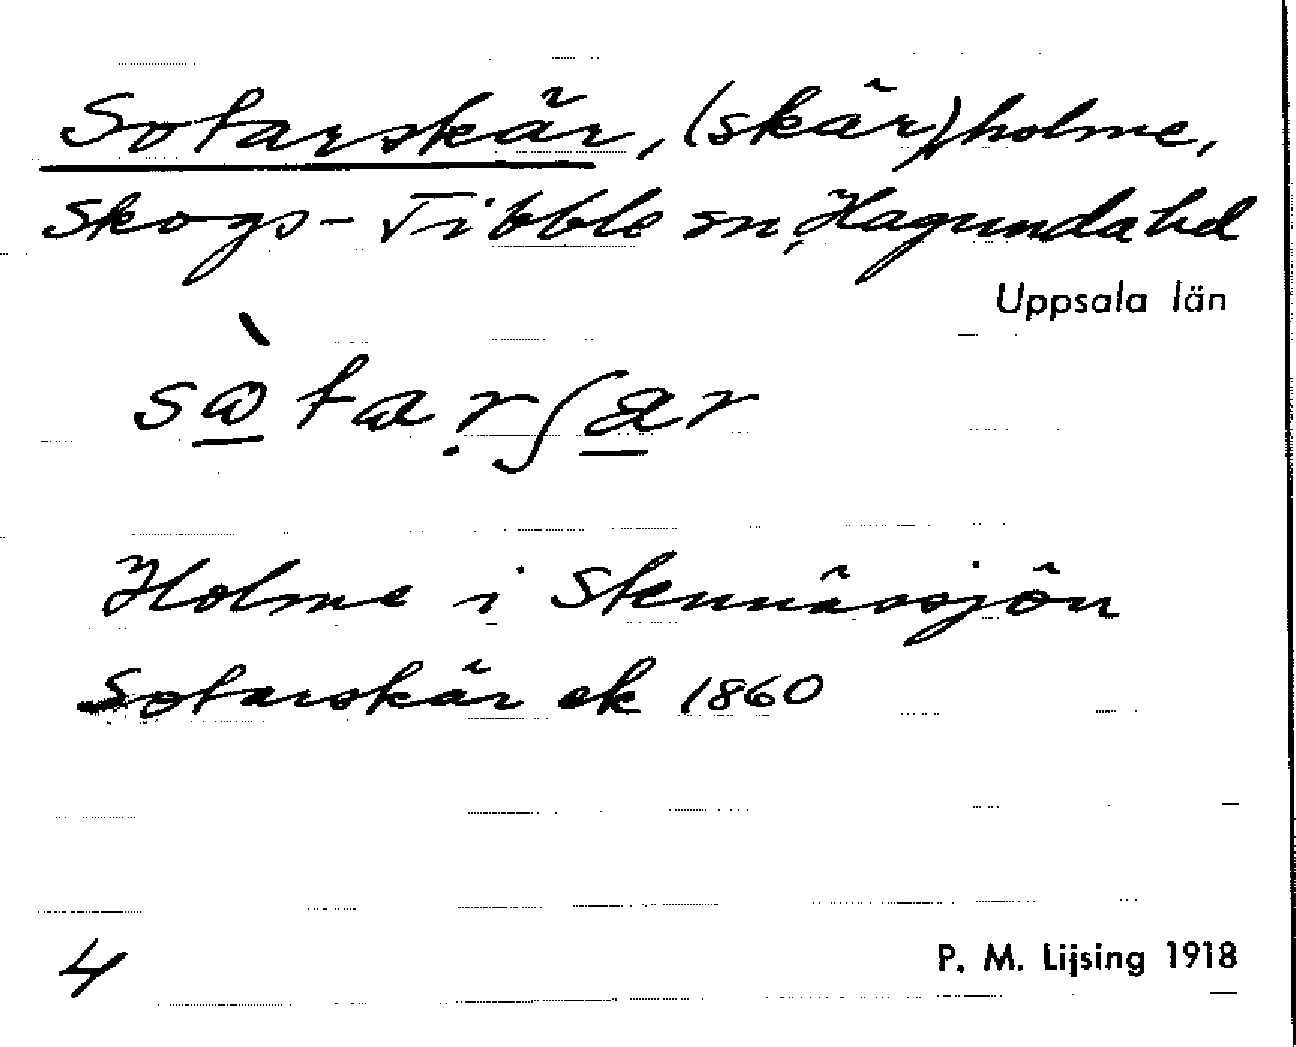 Sotarskär, (skär) holme,
Skogs-Tibble sn, Hagunda hd
Uppsala län
Holme i Stennässjön
Sotarskär ek 1860
4
P. M. Lijsing 1918